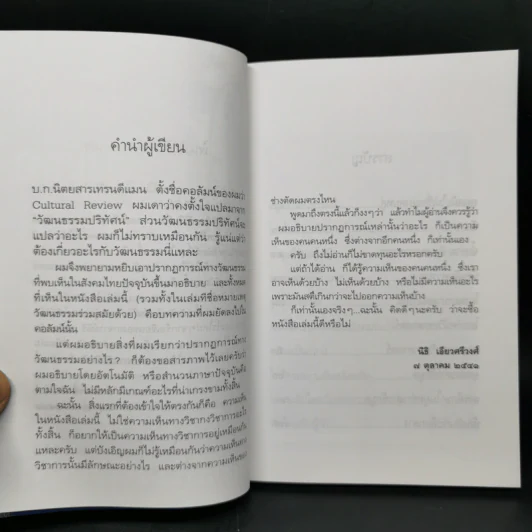 คำนำผู้เขียน
บ.ก.นิตยสารเทรนดีแมน ตั้งชื่อคอลัมน์ของผมว่า
Cultural Review ผมเดาว่าคงตั้งใจแปลมาจาก
"วัฒนธรรมปริทัศน์" ส่วนวัฒนธรรมปริทัศน์จะ
แปลว่าอะไร ผมก็ไม่ทราบเหมือนกัน รู้แน่แต่ว่า
ต้องเกี่ยวอะไรกับวัฒนธรรมนี่แหละ
ผมจึงพยายามหยิบเอาปรากฏการณ์ทางวัฒนธรรม
ที่พบเห็นในสังคมไทยปัจจุบันขึ้นมาอธิบาย และทั้งหมด
ที่เห็นในหนังสือเล่มนี้ (รวมทั้งในเล่มที่ชื่อหมายเหตุ
วัฒนธรรมร่วมสมัยด้วย) คือบทความที่ผมยัดลงไปใน
คอลัมน์นั้น
แต่ผมอธิบายสิ่งที่ผมเรียกว่าปรากฏการณ์ทาง
วัฒนธรรมอย่างไร ? ก็ต้องขอสารภาพไว้เลยครับว่า
ผมอธิบายโดยอัตโนมัติ หรือสำนวนภาษาปัจจุบันคือ
ตามใจฉัน ไม่มีหลักมีเกณฑ์อะไรที่น่าเกรงขามทั้งสิ้น
ฉะนั้น สิ่งแรกที่ต้องเข้าใจให้ตรงกันก็คือ ความเห็น
ในหนังสือเล่มนี้ ไม่ใช่ความเห็นทางวิชากงวิชาการอะไร
ทั้งสิ้น ก็อยากให้เป็นความเห็นทางวิชาการอยู่เหมือนกัน
แหละครับ แต่บังเอิญผมก็ไม่รู้เหมือนกันว่าความเห็นทาง
วิชาการนั้นมีลักษณะอย่างไร และต่างจากความเห็นของ
ช่างตัดผมตรงไหน
พูดมาถึงตรงนี้แล้วก็งงๆว่า แล้วทำไมผู้อ่านจึงควรรู้ว่า
ผมอธิบายปรากฏการณ์เหล่านั้นว่าอะไร ก็เป็นความ
เห็นของคนคนหนึ่ง ซึ่งต่างจากอีกคนหนึ่ง ก็เท่านั้นเอง
ครับ ถึงไม่อ่านก็ไม่ขาดทุนอะไรหรอกครับ
แต่ถ้าได้อ่าน ก็ได้รู้ความเห็นของคนคนหนึ่ง ซึ่งเรา
อาจเห็นด้วยบ้าง ไม่เห็นด้วยบ้าง หรือไม่มีความเห็นอะไร
เพราะมันเสียเกินกว่าจะไปออกความเห็นบ้าง
ก็เท่านั้นเองจริงๆ...ฉะนั้น คิดดีๆนะครับ ว่าจะซื้อ
หนังสือเล่มนี้ดีหรือไม่
นิธิ เอียวศรีวงศ์
๗ ตุลาคม ๒๕๔๑